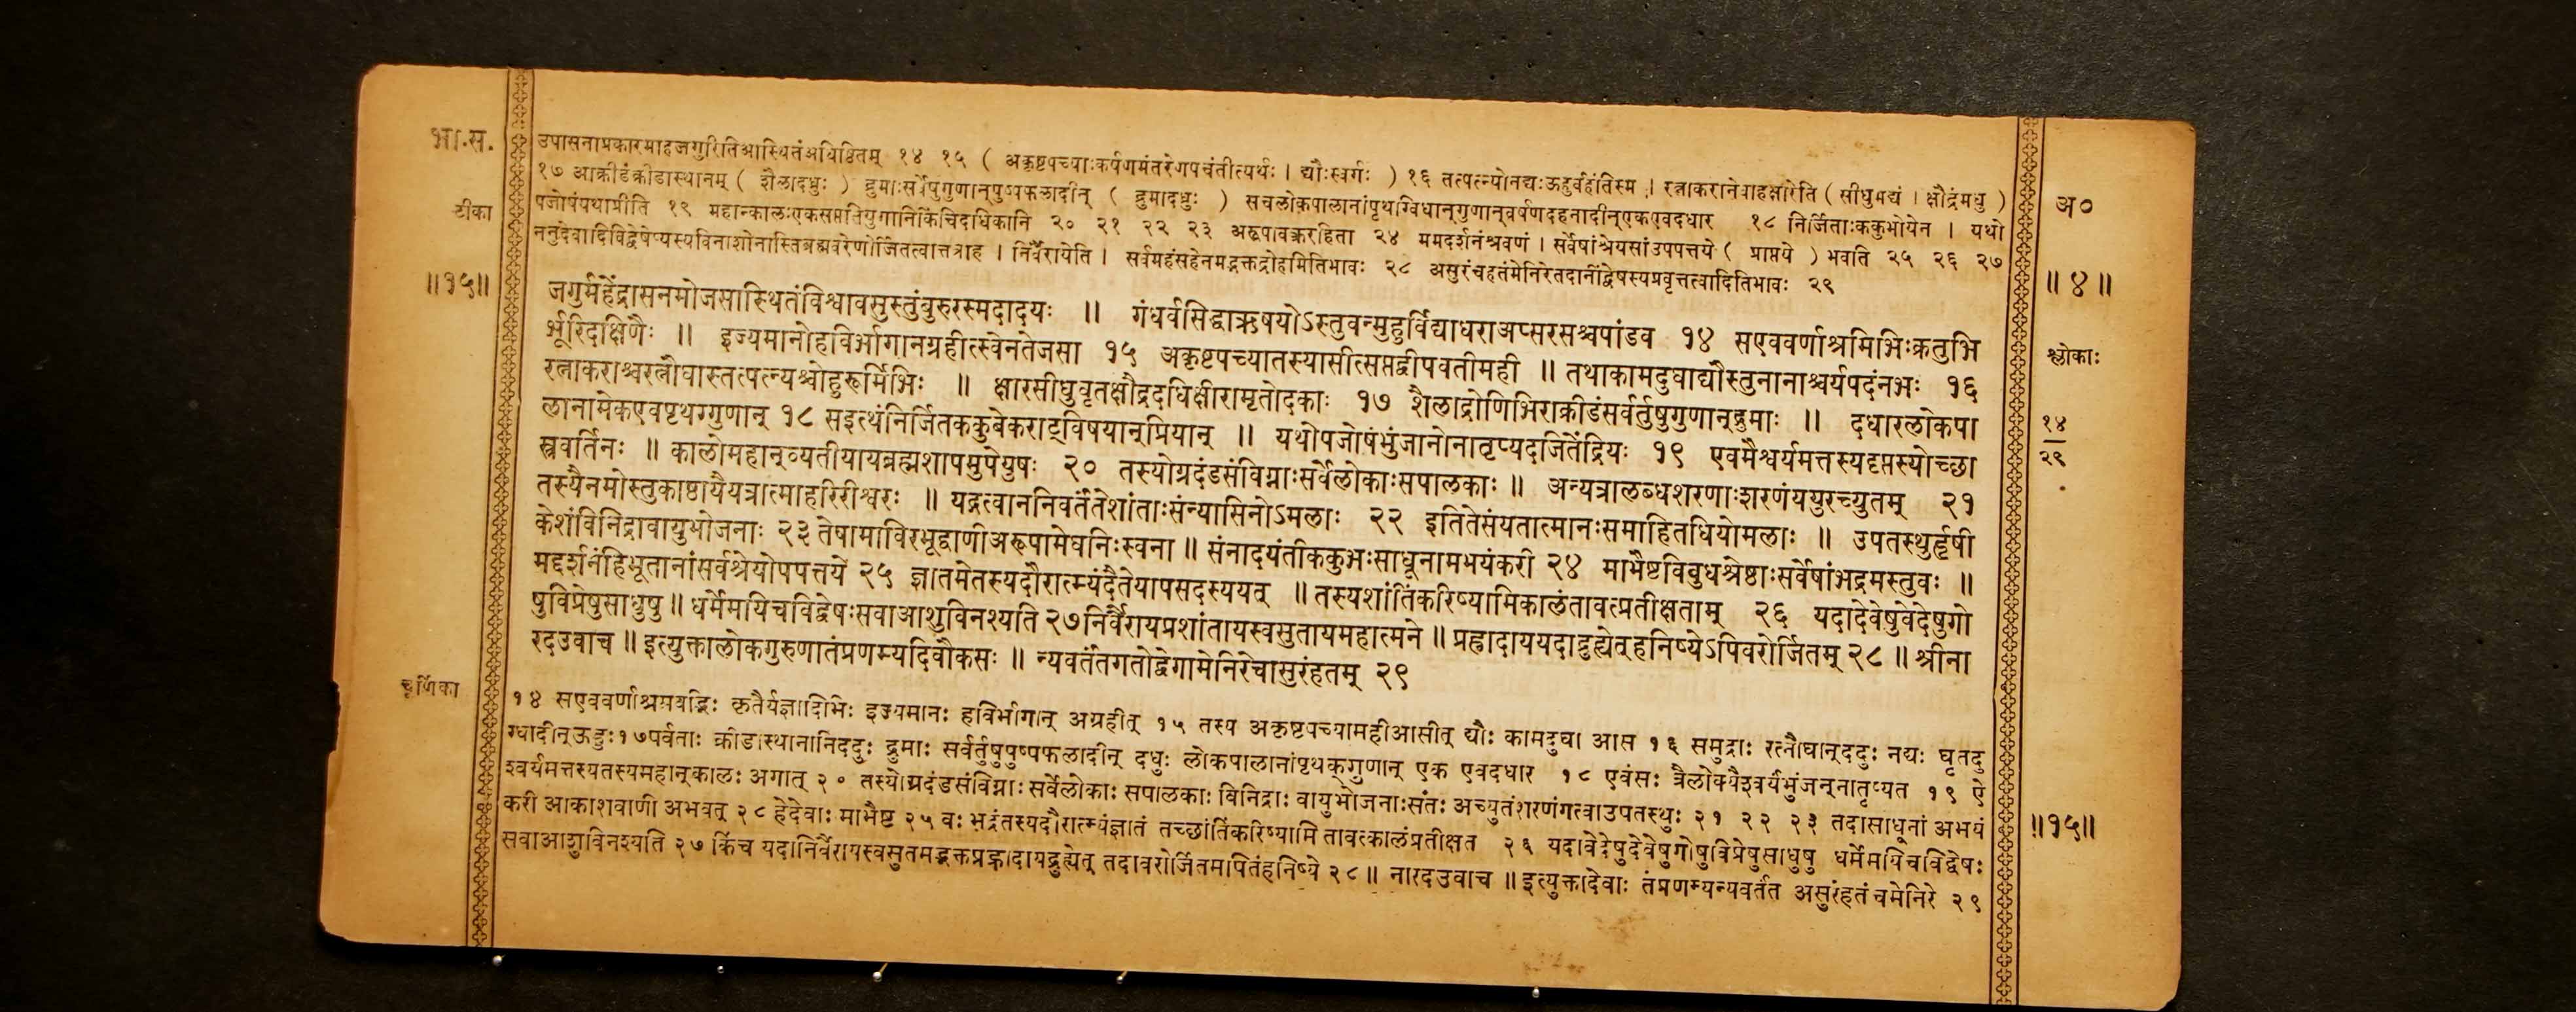 भा.स.
उपासनाप्रकारमाहजगुरितिआस्थितंअधिष्ठितम् १४ १५ ( अकृष्टपच्याःकर्षणमंतरेणपचंतीत्यर्थः । द्यौःस्वर्गः ) १६ तत्पत्न्योनद्यःऊहुर्वहंतिस्म । रत्नाकरानेवाहक्षारेति ( सीधुमद्यं । क्षौद्रंमधु )
१७ आक्रीडंक्रीडास्थानम् ( शैलादधुः ) द्रुमाःसर्वेषुगुणान्पुष्पफलादीन् ( द्रुमादधुः ) सचलोकपालानांपृथग्विधान्गुणान्वर्षणदहनादीन्एकएवदधार १८ निर्जिताःककुभोयेन । यथो
टीका
पजोषंयथाप्रीति १९ महान्कालःएकसप्ततियुगानिकिंचिदधिकानि २० २१ २२ २३ अरूपावक्तृरहिता २४ ममदर्शनंश्रवणं । सर्वेषांश्रेयसांउपपत्तये ( प्राप्तये ) भवति २५ २६ २७
ननुदेवादिविद्वेषेप्यस्यविनाशोनास्तिब्रह्मवरेणोर्जितत्वात्तत्राह । निर्वैरायेति । सर्वमहंसहेनमद्भक्तद्रोहमितिभावः २८ असुरंचहतंमेनिरेतदानींद्वेषस्यप्रवृत्तत्वादितिभावः २९
अ०
॥ ४ ॥
॥१५॥
जगुर्महेंद्रासनमोजसास्थितंविश्वावसुस्तुंबुरुरस्मदादयः ॥ गंधर्वसिद्धाऋषयोऽस्तुवन्मुहुर्विद्याधराअप्सरसश्चपांडव १४ सएववर्णाश्रमिभिःक्रतुभि
र्भूरिदक्षिणैः ॥ इज्यमानोहविर्भागानग्रहीत्स्वेनतेजसा १५ अकृष्टपच्यातस्यासीत्सप्तद्वीपवतीमही ॥ तथाकामदुघाद्यौस्तुनानाश्चर्यपदंनभः १६
श्लोकाः
रत्नाकराश्चरत्नौघास्तत्पत्न्यश्चोहुरूर्मिभिः ॥ क्षारसीधुघृतक्षौद्रदधिक्षीरामृतोदकाः १७ शैलाद्रोणिभिराक्रीडंसर्वर्तुषुगुणान्द्रुमाः ॥ दधारलोकपा
लानामेकएवपृथग्गुणान् १८ सइत्थंनिर्जितककुबेकराट्विषयान्प्रियान् ॥ यथोपजोषंभुंजानोनातृप्यदजितेंद्रियः १९ एवमैश्वर्यमत्तस्यदृप्तस्योच्छा
१४
२९
स्त्रवर्तिनः ॥ कालोमहान्व्यतीयायब्रह्मशापमुपेयुषः २० तस्योग्रदंडसंविग्नाःसर्वेलोकाःसपालकाः ॥ अन्यत्रालब्धशरणाःशरणंययुरच्युतम् २१
तस्यैनमोस्तुकाष्ठायैयत्रात्माहरिरीश्वरः ॥ यद्गत्वाननिवर्तंतेशांताःसंन्यासिनोऽमलाः २२ इतितेसंयतात्मानःसमाहितधियोमलाः ॥ उपतस्थुर्हृषी
केशंविनिद्रावायुभोजनाः २३ तेषामाविरभूद्वाणीअरूपामेघनिःस्वना ॥ संनादयंतीककुभःसाधूनामभयंकरी २४ माभैष्टविबुधश्रेष्ठाःसर्वेषांभद्रमस्तुवः ॥
मद्दर्शनंहिभूतानांसर्वश्रेयोपपत्तये २५ ज्ञातमेतस्यदौरात्म्यंदैतेयापसदस्ययत् ॥ तस्यशांतिंकरिष्यामिकालंतावत्प्रतीक्षताम् २६ यदादेवेषुवेदेषुगो
षुविप्रेषुसाधुषु ॥ धर्मेमयिचविद्वेषःसवाआशुविनश्यति २७निर्वैरायप्रशांतायस्वसुतायमहात्मने ॥ प्रह्रादाययदाद्रुह्येद्धनिष्येऽपिवरोर्जितम् २८ ॥ श्रीना
रदउवाच ॥ इत्युक्तालोकगुरुणातंप्रणम्यदिवौकसः ॥ न्यवर्तंतगतोद्वेगामेनिरेचासुरंहतम् २९
चूर्णिका
१४ सएववर्णाश्रमवद्भिः कृतैर्यज्ञादिभिः इज्यमानः हविर्भागान् अग्रहीत् १५ तस्य अकृष्टपच्यामहीआसीत् द्यौः कामदुघा आस १६ समुद्राः रत्नौघान्ददुः नद्यः घृतदु
ग्धादीन्ऊहुः१७पर्वताः क्रीडास्थानानिददुः द्रुमाः सर्वर्तुषुपुष्पफलादीन् दधुः लोकपालानांपृथक्गुणान् एक एवदधार १८ एवंसः त्रैलोक्यैश्वर्यंभुंजन्नातृप्यत १९ ऐ
श्वर्यमत्तस्यतस्यमहान्कालः अगात् २० तस्योग्रदंडसंविग्नाः सर्वेलोकाः सपालकाः विनिद्राः वायुभोजनाःसंतः अच्युतंशरणंगत्वाउपतस्थुः २१ २२ २३ तदासाधूनां अभयं
करी आकाशवाणी अभवत् २८ हेदेवाः माभैष्ट २५ वः भद्रंतस्यदौरात्म्यंज्ञातं तच्छांतिंकरिष्यामि तावत्कालंप्रतीक्षत २६ यदावेदेषुदेवेषुगोषुविप्रेषुसाधुषु धर्मेमयिचविद्वेषः
॥१५॥
सवाआशुविनश्यति २७ किंच यदानिर्वैरायस्वसुतमद्भक्तप्रह्रादायद्रुह्येत् तदावरोर्जितमपितंहनिष्ये २८ ॥ नारदउवाच ॥ इत्युक्तादेवाः तंप्रणम्यन्यवर्तत असुरंहतं चमेनिरे २९